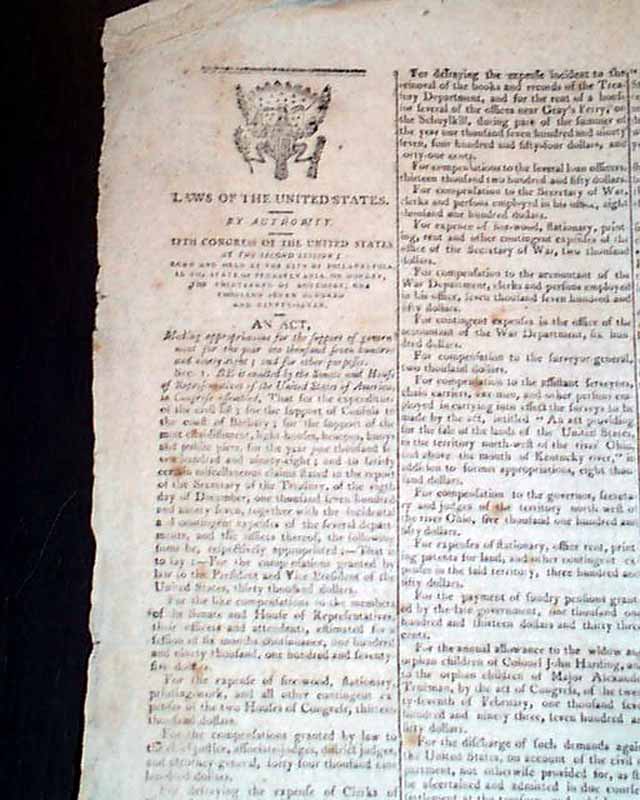 LAWS OF THE UNITED STATES.
BY AUTHORITY.
CONGRESS OF THE UNITED STATES
AT THE SECOND SESSION;
AN ACT,
Making appropriations for the support of govern-
ment for the year one thousand seven hundred
and ninety-eight; and for other purposes.
Sec. 1. BE it enacted by the Senate and House
of Representatives of the United States of America,
in Congress assembled, That for the expenditure
of the civil list; for the support of Consuls to
the coast of Barbary; for the support of the
mint establishment, light-houses, beacons, buoys
and public piers, for the year one thousand se-
ven hundred and ninety-eight; and to satisfy
certain miscellaneous claims stated in the report
of the Secretary of the Treasury, of the eighth
day of December, one thousand seven hundred
and ninety seven, together with the incidental
and contingent expenses of the several depart-
ments, and the offices thereof, the following
sums be, respectively appropriated:—That is
to say:—For the compensations granted by
law to the President and Vice President of the
United States, thirty thousand dollars.
For the like compensations to the members
of the Senate and House of Representatives,
their officers and attendants, estimated for a
session of six months continuance, one hundred
and ninety thousand, one hundred and seventy-
five dollars.
For the expense of fire-wood, stationary,
printing-work, and all other contingent ex-
penses of the two Houses of Congress, thirteen
thousand dollars.
For the compensations granted by law to
the chief justice, associate judges, district judges,
and attorney general, forty four thousand
hundred dollars.
For defraying the expense of Clerks of
For defraying the expense incident to the
removal of the books and records of the Trea-
sury Department, and for the rent of a house
for several of the offices near Gray's Ferry, on
the Schuylkill, during part of the summer of
the year one thousand seven hundred and ninety
seven, four hundred and fifty-four dollars, and
forty-one cents.
For compensations to the several loan officers,
thirteen thousand two hundred and fifty dollars.
For compensation to the Secretary of War,
clerks and persons employed in his office, eight
thousand one hundred dollars.
For expence of fire-wood, stationary, print
ing, rent and other contingent expenses of the
office of the Secretary of War, two thousand
dollars.
For compensation to the accountant of the
War Department, clerks and persons employed
in his office, seven thousand seven hundred and
fifty dollars.
For contingent expenses in the office of the
accountant of the War Department, six hun-
dred dollars.
For compensation to the surveyor-general,
two thousand dollars.
For compensation to the assistant surveyors,
chain carriers, axe-men, and other persons em-
ployed in carrying into effect the surveys to be
made by the act, intitled "An act providing
for the sale of the lands of the United States,
in the territory north-west of the river Ohio,
and above the mouth of Kentucky river," in
addition to former appropriations, eight thou
sand dollars.
For compensation to the governor, secreta-
ry and judges of the territory north-west of
the river Ohio, five thousand one hundred and
fifty dollars.
For expenses of stationary, office rent, print
ing patents for land, and other contingent ex-
penses in the said territory, three hundred and
fifty dollars.
For the payment of sundry pensions grant
ed by the late government, one thousand one
hundred and thirteen dollars and thirty three
cents.
For the annual allowance to the widow and
orphan children of Colonel John Harding, and
to the orphan children of Major Alexander
Trueman, by the act of Congress, of the twen
ty-seventh of February, one thousand seven
hundred and ninety three, seven hundred and
fifty dollars.
For the discharge of such demands against
the United States, on account of the civil de
partment, not otherwise provided for, as
be ascertained and admitted in due course